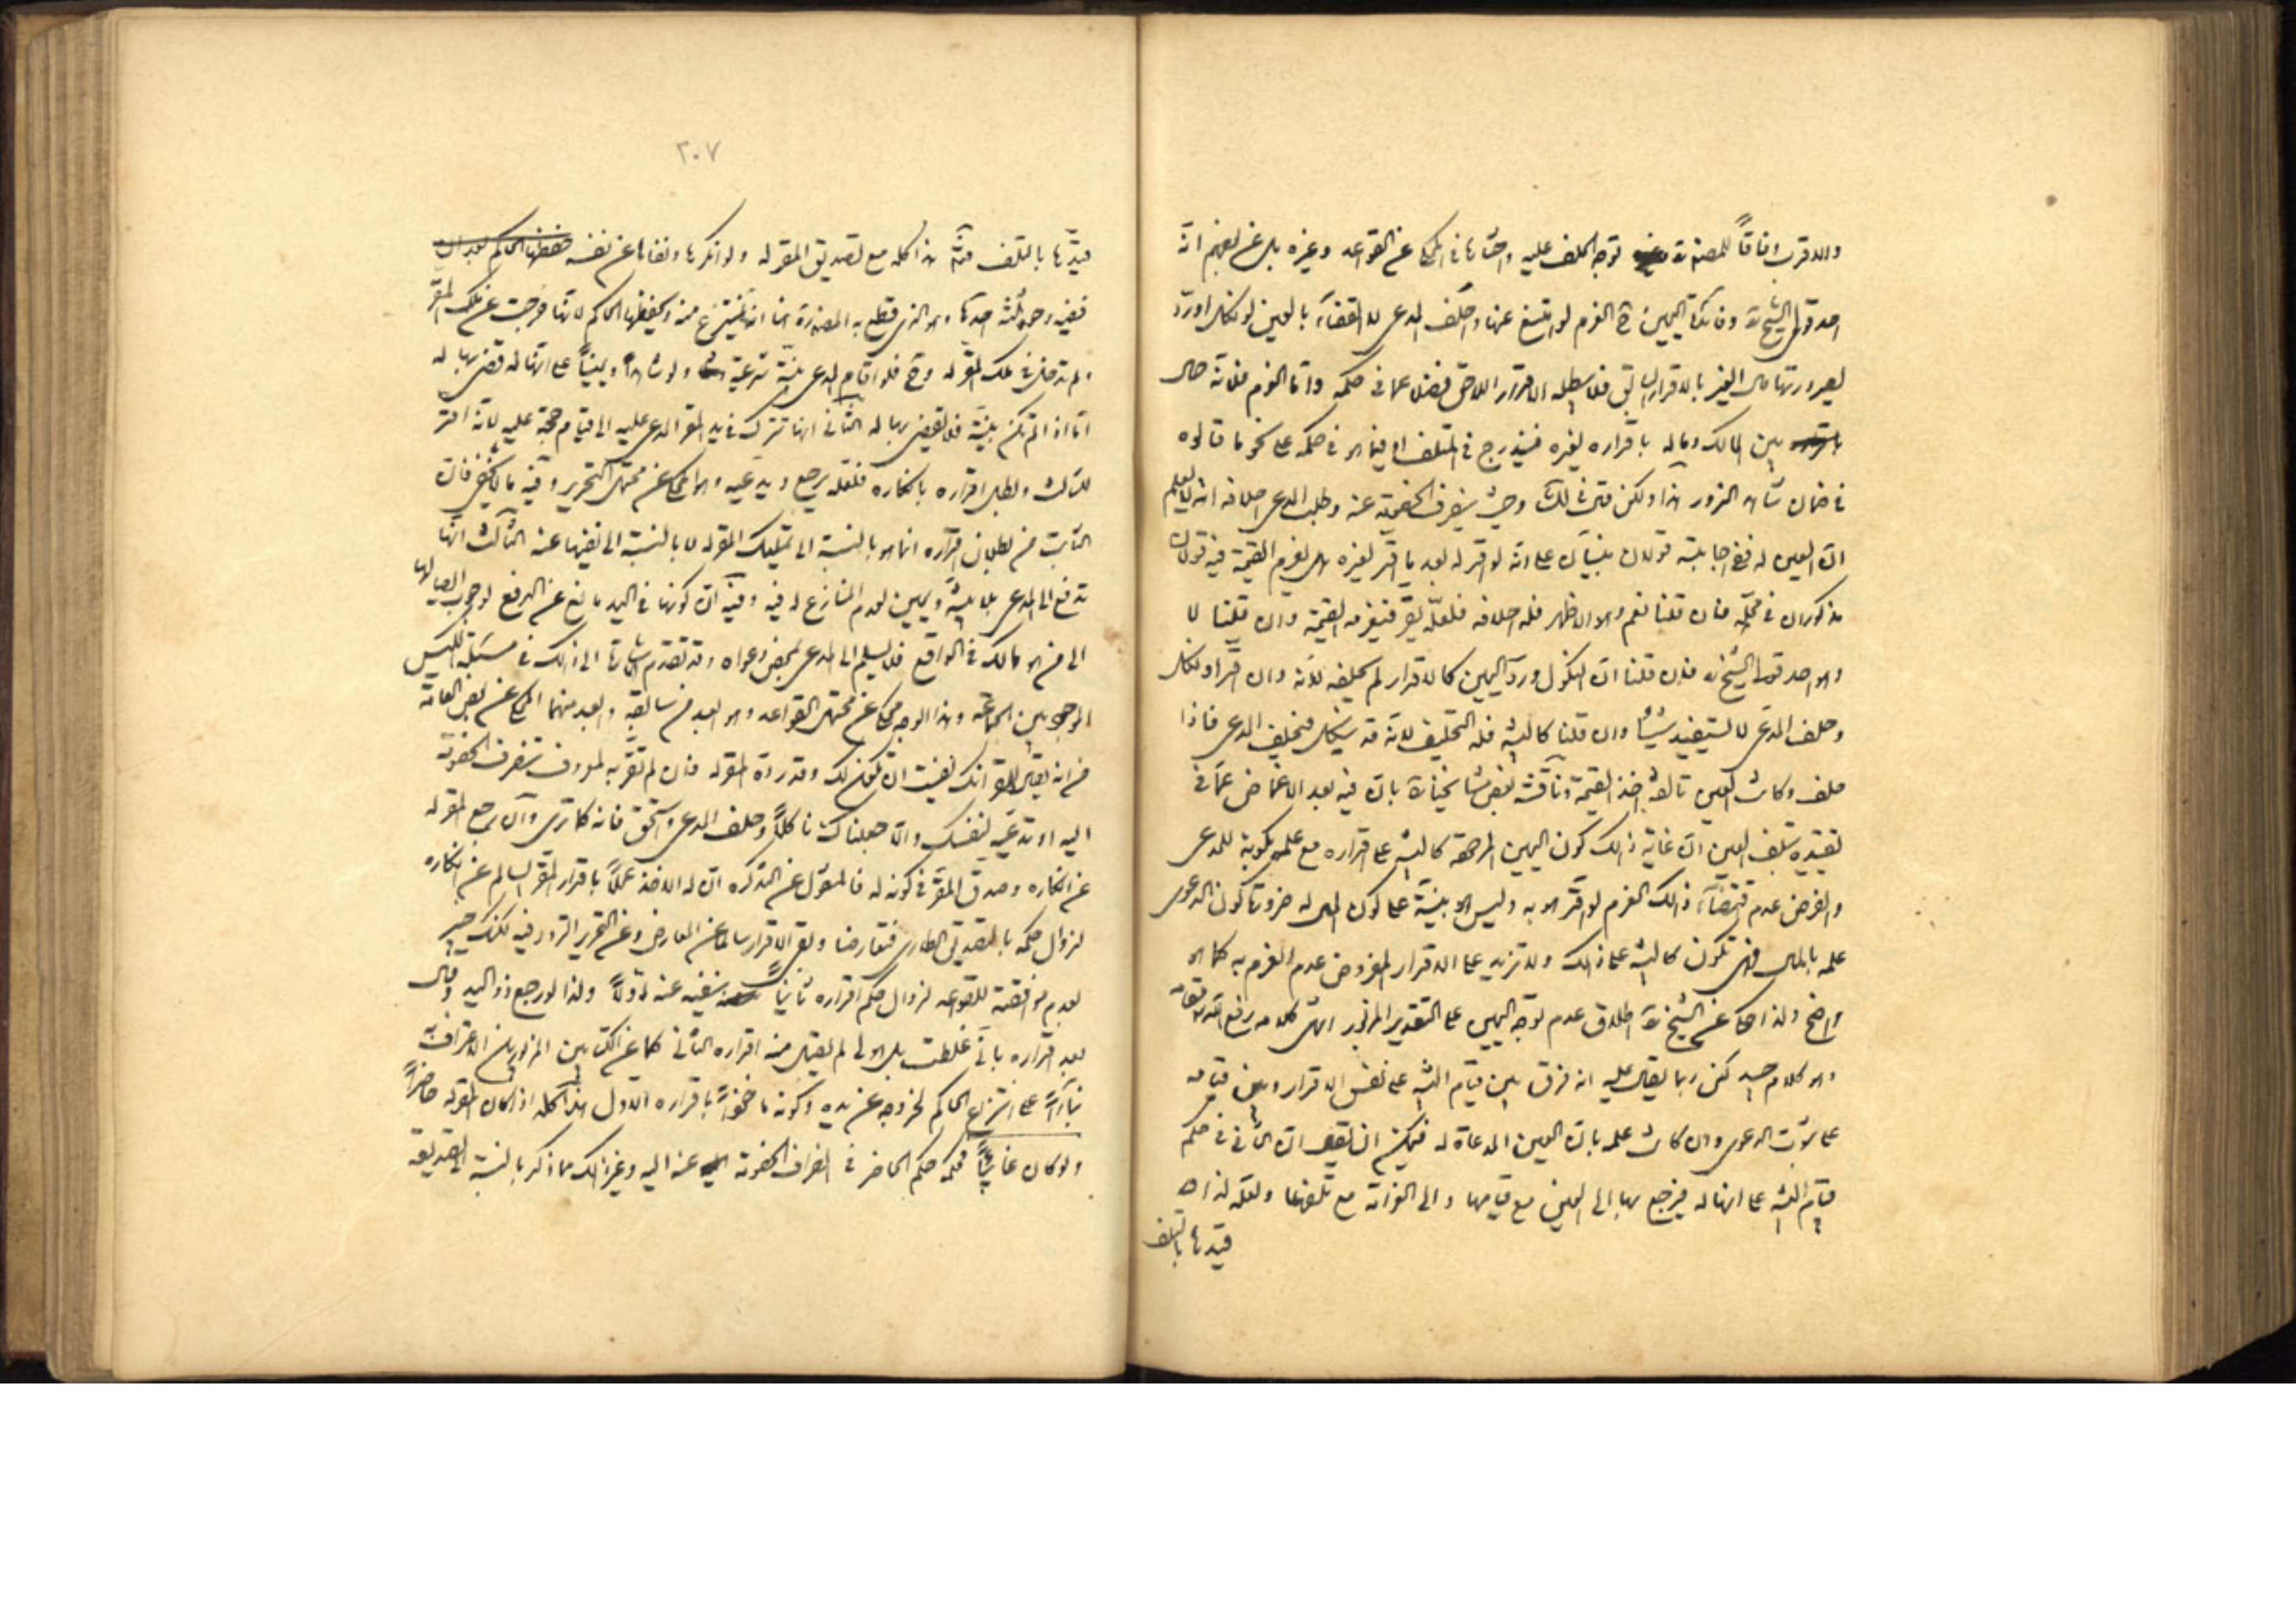 والاقرب وفاقاً للمصنف ره توجه الحلف عليه واختارها في المحكي عن القواعد وغيره بل عن بعضهم انه
احد قولي الشيخ ره وفائدة اليمين ح الغرم لو امتنع عنها وحلف المدعي لا القضاء بالعين لو نكل او رد
لصيرورتها مال الغير بالاقرار السابق فلا يبطله الاقرار اللاحق فضلا عما في حكمه واما الغرم فلانه حال
بين المالك وماله باقراره لغيره فيندرج في المتلف او فيما هو في حكمه على نحو ما قالوه
في ضمان شاهد الزور هذا ولكن في ذلك وحيث ينصرف الخصومة عنه وطلب المدعي احلافه انه لا يعلم
ان العين له ففي اجابته قولان مبنيان على انه لو اقر له بعد ما اقر لغيره هل يغرم القيمة فيه قولان
مذكوران في محله فان قلنا نعم وهو الاظهر فله احلافه فلعله يقر فيغرمه القيمة وان قلنا لا
وهو احد قولي الشيخ ره فان قلنا ان النكول ورد اليمين كالاقرار لم يحلفه لانه وان اقر او نكل
وحلف المدعي لا يستفيد شيئاً وان قلنا كالبينة فله التحليف لانه قد ينكل فيحلف المدعي فاذا
حلف وكانت العين تالفة اخذ القيمة وناقشه بعض مشايخنا ره بان فيه بعد الاغماض عما في
تقييده بتلف العين ان غاية ذلك كون اليمين المردودة كالبينة على اقراره مع علمه بكونه للمدعي
والفرض عدم اقتضاء ذلك الغرم لو اقر هو به وليس هو بينة على كون المال له ضرورة كون الدعوى
علمه بالمال فهي تكون كالبينة على ذلك ولا تزيد على الاقرار المفروض عدم الغرم به كما هو
واضح ولذا حكي عن الشيخ ره اطلاق عدم توجه اليمين على التقدير المزبور انتهى كلامه رفع الله مقامه
وهو كلام جيد لكن ربما يقال عليه انه فرق بين قيام البينة على نفس الاقرار وبين قيامه
على ثبوت الدعوى وان كانت علمه بان العين المدعاة له فيمكن ان يقال ان الثاني في حكم
قيام البينة على انها له فيرجع بها الى العين مع قيامها والى الغرامة مع تلفها ولعله لذا
قيدها بالتلف
٢٠٧
قيدها بالتلف فتم هذا كله مع تصديق المقر له ولو انكرها ونفاها عن نفسه حفظها الحاكم بعد ان
ففيه وجوه ثلثة احدها وهو الذي قطع به المص ره انها تنتزع منه ويحفظها الحاكم لانها خرجت عن ملك المقر
ولم تدخل في ملك المقر له وح فلو اقام المدعي بينة شرعية ولو شاهداً ويميناً على انها له قضي بها له
اما اذا لم تكن بينة فلا يقضى بها له الثاني انها تترك في يد المقر المدعى عليه الى قيام حجة عليه لانه اقر
للثالث وبطل اقراره بانكاره فلعله يرجع ويدعيه وهو المحكي عن محتمل التحرير وفيه ما لا يخفى فان
الثابت من بطلان اقراره انما هو بالنسبة الى تمليك المقر له لا بالنسبة الى نفيها عنه الثالث انها
تدفع الى المدعي بلا بينة ويمين لعدم المنازع له فيه وفيه ان كونها في اليد مانع عن الدفع لوجوب ايصالها
الى من هو مالك في الواقع فلا يسلم الى المدعي لمحض دعواه وقد تقدم اشارة الى ذلك في مسئلة الكيس
الموجود بين الجماعة وهذا الوجه محكي عن محتمل القواعد وهو ابعد من سابقه وابعد منهما المحكي عن بعض العامة
من انه يقال للمقر انك نفيت ان تكون لك وقد رده المقر له فان لم تقر به لمعروف تنصرف الخصومة
اليه او تدعيه لنفسك والا جعلناك ناكلاً وحلف المدعي واستحق فانه كما ترى وان رجع المقر له
عن انكاره وصدق المقر في كونه له فالمنقول عن التذكرة ان له الاخذ عملاً باقرار المقر السالم عن انكاره
لزوال حكمه بالتصديق الطاري فتعارضا وبقي الاقرار سالما عن المعارض وعن التحرير التردد فيه لكنه غير
بعدم موافقته للقواعد لزوال حكم اقراره ثانياً بنفيه عنه اولاً ولذا لو رجع ذو اليد وقال
بعد اقراره باني غلطت بل هو لي لم يقبل منه اقراره الثاني كما عن الكتابين المزبورين الاعتراف
بناءً على انتزاع الحاكم لخروجه عن يده وكونه ماخوذاً باقراره الاول هذا كله اذا كان المقر له حاضراً
ولو كان غائباً فحكمه حكم الحاضر في انصراف الخصومة عنه اليه وغير ذلك مما ذكر بالنسبة الى تصديقه